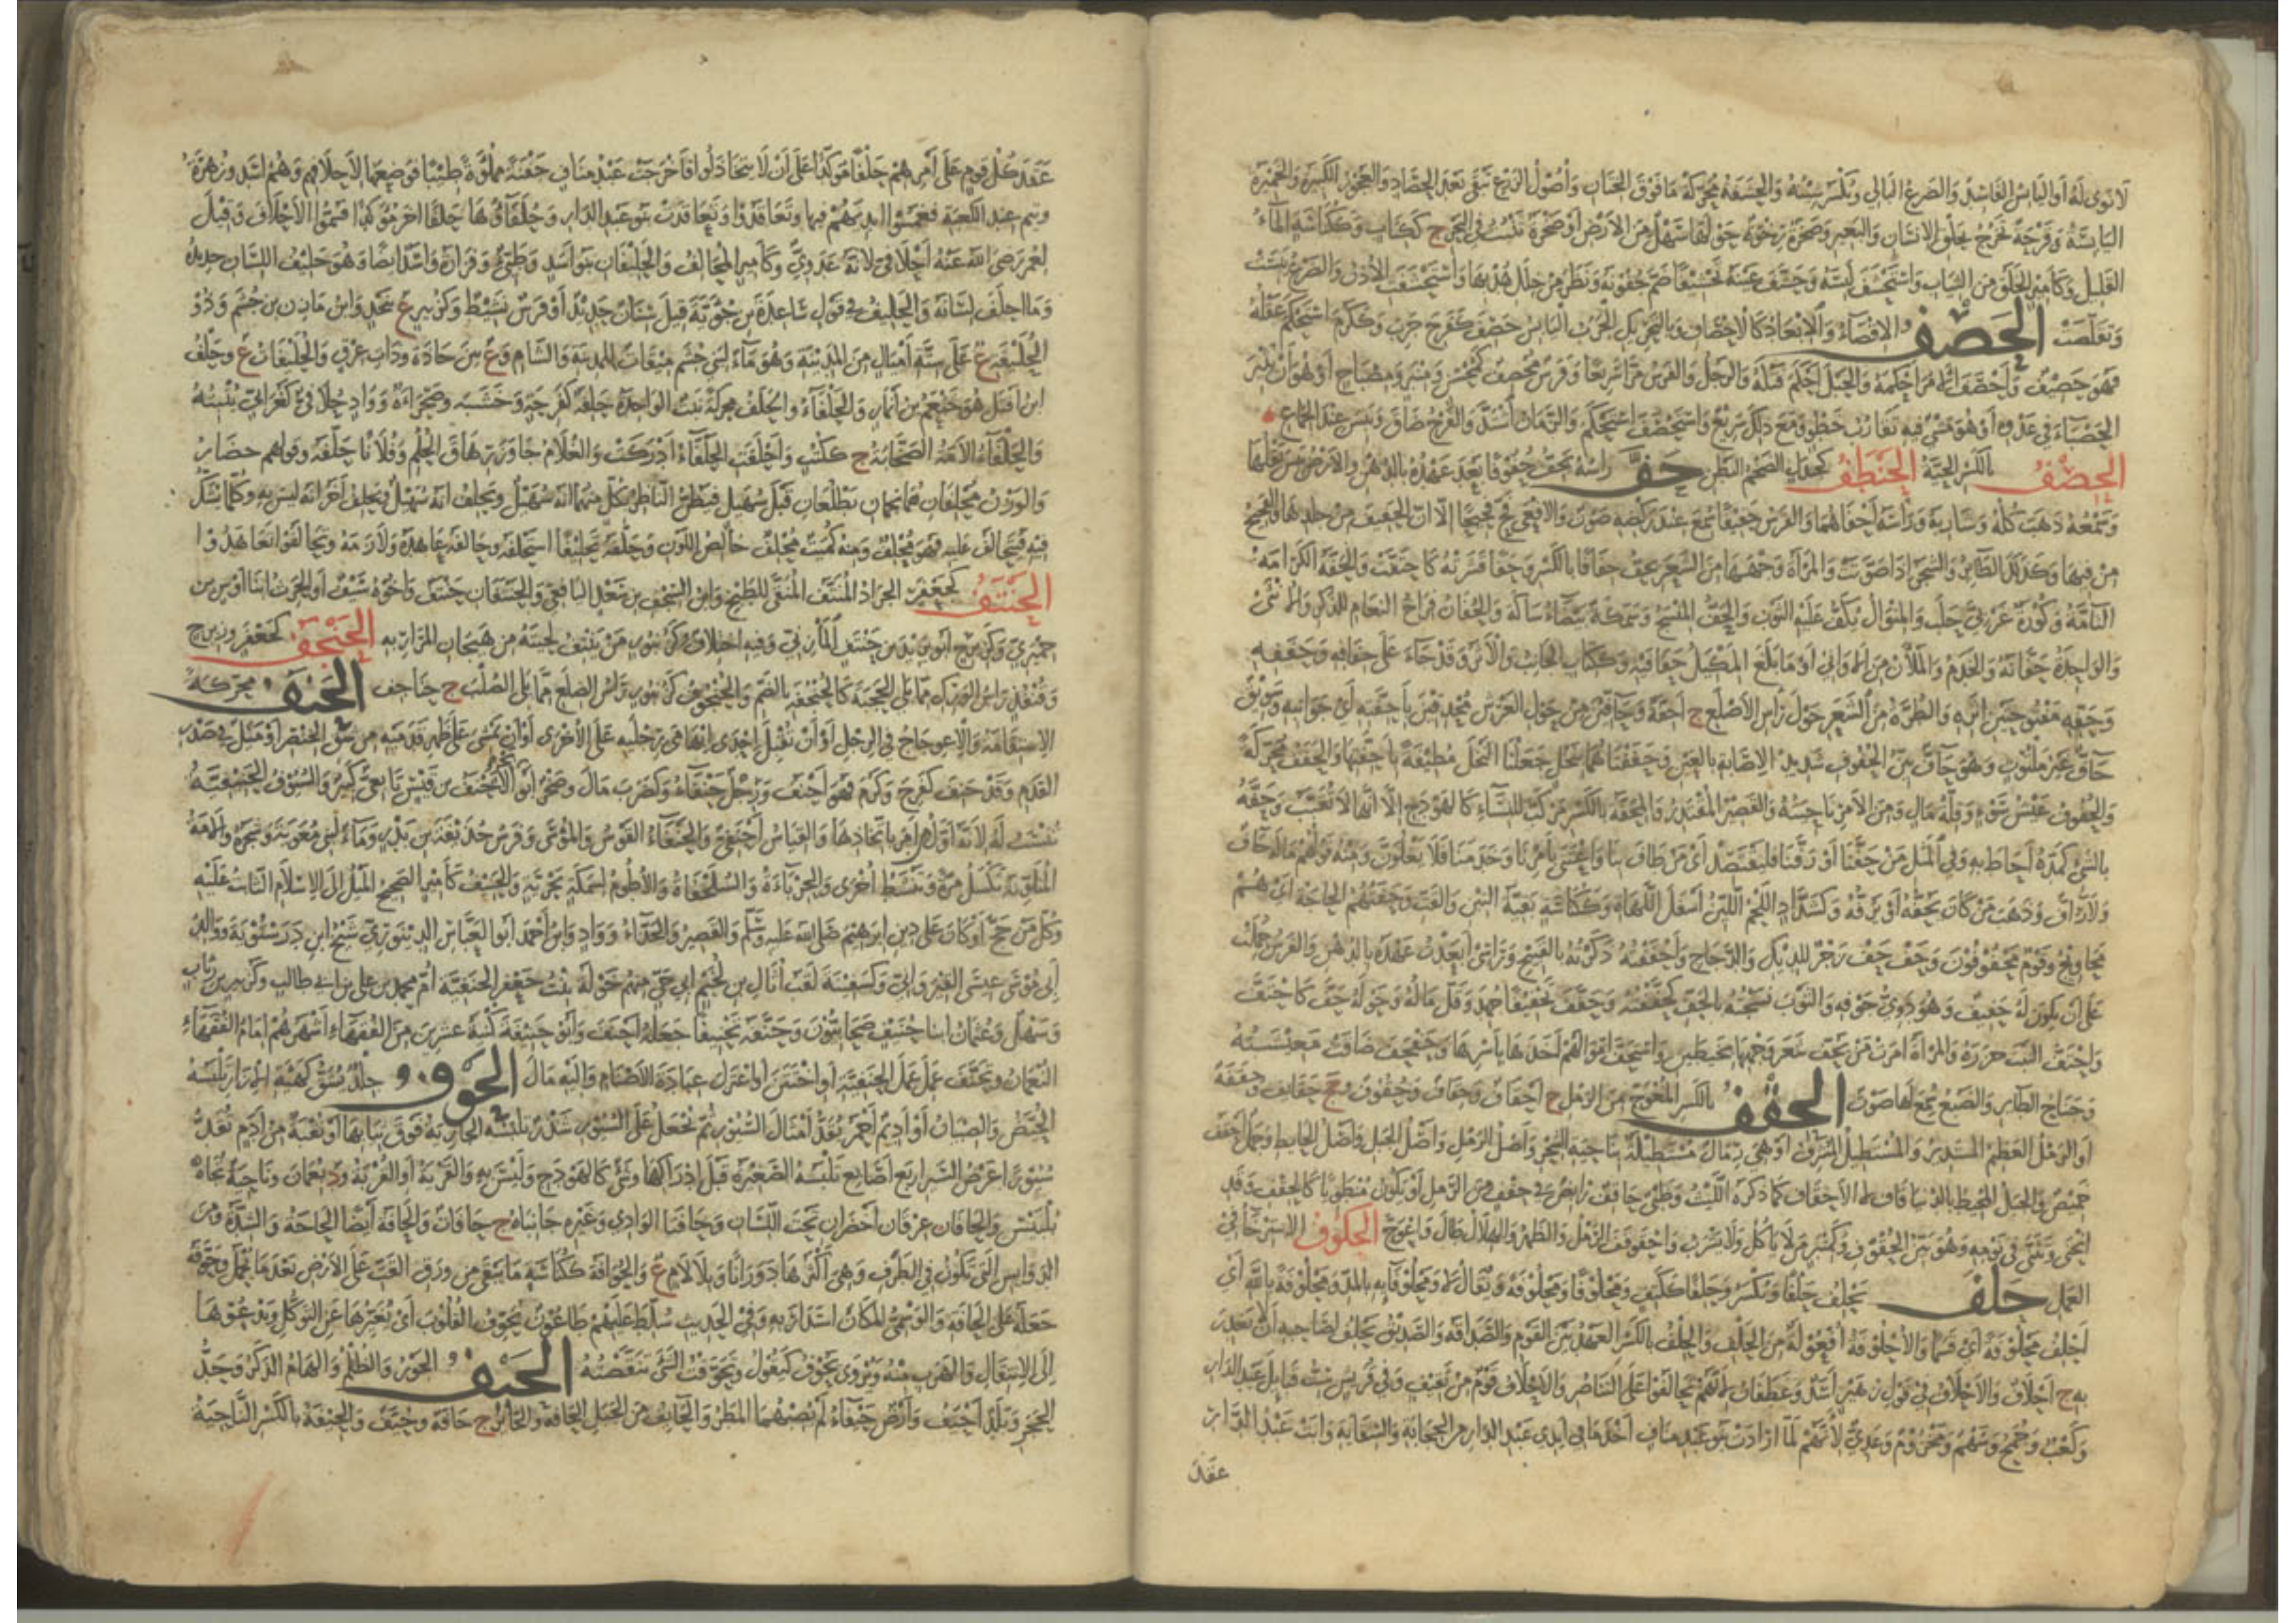 لا نوى له أو اليابس الفاسد والضرع البالي وتكسر شينه والحشفة محركة ما فوق الختان وأصول الزرع تبقى بعد الحصاد والعجوز الكبيرة والخميرة
اليابسة وقرحة تخرج بحلق الإنسان والبعير وصخرة رخوة حولها سهل من الأرض أو صخرة تنبت في البحر ج ككتاب وككناسة الماء
القليل وكأمير الخلق من الثياب واستحشف لبسه وحشف عينه تحشيفا ضم جفونه ونظر من خلل هدبها واستحشفت الأذن والضرع يبست
وتقلصت الحصف الإقصاء والإبعاد كالإحصاف وبالتحريك الجرب اليابس حصف كفرح جرب وككرم استحكم عقله
فهو حصيف وأحصف الأمر أحكمه والحبل أحكم فتله والرجل والفرس مرا سريعا وفرس محصف كمحسن ومنبر ومصباح أو هو أن يثير
الحصباء في عدوه أو هو مشي فيه تقارب خطو وهو مع ذلك سريع واستحصف استحكم والزمان اشتد والفرج ضاق ويبس عند الجماع
الحضف بالكسر الحية الحنطف كجندل الضخم البطن حف رأسه يحف حفوفا بعد عهده بالدهن والأرض يبس بقلها
وسمعه ذهب كله وشاربه ورأسه أحفاهما والفرس حفيفا سمع عند ركضه صوت والأفعى فح فحيحا إلا أن الحفيف من جلدها والفحيح
من فيها وكذلك الطائر والشجر إذا صوتت والمرأة وجهها من الشعر تحف حفافا بالكسر وحفا قشرته كاحتفت والحفة الكرامة
التامة وكورة غربي حلب والمنوال يلف عليه الثوب والحف المنسج وسمكة بيضاء شاكة والحفان فراخ النعام للذكر والأنثى
والواحدة حفانة والخدم والملآن من الأواني أو ما بلغ المكيل حفافيه وككتاب الجانب والأثر وقد جاء على حفافه وحففه
وحفه مفتوحتين أثره والطرة من الشعر حول رأس الأصلع ج أحفة وحافين من حول العرش محدقين بأحفته أي جوانبه وسويق
حاف غير ملتوت وهو حاف بين الحفوف شديد الإصابة بالعين وحففناهما بنخل جعلنا النخل مطيفة بأحفتهما والحفف محركة
والحفوف عيش سوء وقلة مال ومن الأمر ناحيته والقصير المقتدر والمحفة بالكسر مركب للنساء كالهودج إلا أنها لا تقبب وحفه
بالشيء كمده أحاط به وفي المثل من حفنا أو رفنا فليقتصد أي من طاف بنا واعتنى بأمرنا وخدمنا فلا يغلون ومنه قولهم ماله حاف
ولا راف وذهب من كان يحفه أو يرفه وكشداد اللحم اللين أسفل اللهاة وككناسة بقية التبن والقت وحفتهم الحاجة أي هم
محاويج وقوم محفوفون وحف حف زجر للديك والدجاج وأحففته ذكرته بالقبيح ورأسي أبعدت عهده بالدهن والفرس حملته
على أن يكون له حفيف وهو دوي جوفه والثوب نسجته بالحف كحففته وحفف تحفيفا جهد وقل ماله وحوله حف كاحتف
واحتف النبت حززه والمرأة أمرت من تحف شعر وجهها بخيطين واستحف أموالهم أخذها بأسرها وحفحف ضاقت معيشته
وجناح الطائر والضبع سمع لها صوت الحقف بالكسر المعوج من الرمل ج أحقاف وحقاف وحقوف جج حقائف وحققة
أو الرمل العظيم المستدير والمستطيل المشرف أو هي رمال مستطيلة بناحية الشحر وأصل الرمل وأصل الجبل وأصل الحائط وجمل أحقف
خميص والجبل المحيط بالدنيا قاف لا الأحقاف كما ذكره الليث وظبي حاقف رابض في حقف من الرمل أو يكون منطويا كالحقف وقد
انحنى وتثنى في نومه وهو بين الحقوف وكمنبر من لا يأكل ولا يشرب واحقوقف الرمل والظهر والهلال طال واعوج الحكوف الاسترخاء في
العمل حلف يحلف حلفا ويكسر وحلفا ككتف ومحلوفا ومحلوفة ويقال لا ومحلوفائه بالمد ومحلوفة بالله أي
أحلف محلوفة أي قسما والأحلوفة أفعولة من الحلف والحلف بالكسر العهد بين القوم والصداقة والصديق يحلف لصاحبه أن لا يغدر
به ج أحلاف والأحلاف في قول زهير أسد وغطفان لأنهم تحالفوا على التناصر والأحلاف قوم من ثقيف وفي قريش ست قبائل عبد الدار
وكعب وجمح وسهم ومخزوم وعدي لأنهم لما أرادت بنو عبد مناف أخذ ما في أيدي عبد الدار من الحجابة والسقاية وأبت عبد الدار
عقد
عقد كل قوم على أمرهم حلفا مؤكدا على أن لا يتخاذلوا فأخرجت عبد مناف جفنة مملوءة طيبا فوضعها لأحلافهم وهم أسد وزهرة
وتيم عند الكعبة فغمسوا أيديهم فيها وتعاقدوا وتعاقدت بنو عبد الدار وحلفاؤها حلفا آخر مؤكدا فسموا الأحلاف وقيل
لعمر رضي الله عنه أحلافي لأنه عدوي وكأمير المحالف والحليفان بنو أسد وطيئ وفزارة وأسد أيضا وهو حليف اللسان حديده
وما أحلف لسانه والحليف في قول ساعدة بن جؤية قيل سنان حديد أو فرس نشيط وكزبير ع بنجد وابن مازن بن جشم وذو
الحليفة ع على ستة أميال من المدينة وهو ماء لبني جشم ميقات للمدينة والشام و ع بين حاذة وذات عرق والحليفات ع وحلف
ابن أفتل هو خثعم بن أنمار والحلفاء والحلف محركة نبت الواحدة حلفة كفرحة وخشبة وصحراءة وواد حلافي كغرابي ينبته
والحلفاء الأمة الصخابة ج ككتب وأحلفت الحلفاء أدركت والغلام جاوز رهاق الحلم وفلانا حلفه وقولهم حضار
والوزن محلفان هما نجمان يطلعان قبل سهيل فيظن الناظر بكل منهما أنه سهيل ويحلف أنه سهيل ويحلف آخر أنه ليس به وكل ما يشك
فيه فيتحالف عليه فهو محلف ومنه كميت محلف خالص اللون وحلفه تحليفا استحلفه وحالفه عاهده ولازمه وتحالفوا تعاهدوا
الحنتف كجعفر الجراد المنتف المنقى للطبخ وابن السجف بن سعد اليافعي والحنتفان حنتف وأخوه سيف أو الحرث ابنا أوس بن
حميري وكزبرج أبو يزيد بن حنتف المازني وفيه اختلاف وكزنبور من ينتف لحيته من هيجان المرار به الحنجف كجعفر وزبرج
وقنفذ رأس الورك مما يلي الحجبة كالحنجفة بالضم والحنجوف كزنبور رأس الضلع مما يلي الصلب ج حناجف الحنف محركة
الاستقامة والاعوجاج في الرجل أو أن يقبل إحدى إبهامي رجليه على الأخرى أو أن يمشي على ظهر قدميه من شق الخنصر أو ميل في صدر
القدم وقد حنف كفرح وكرم فهو أحنف ورجل حنفاء وكضرب مال وصخر أبو بحر الأحنف بن قيس تابعي كبير والسيوف الحنيفية
تنسب له لأنه أول من أمر باتخاذها والقياس أحنفي والحنفاء القوس والموسى وفرس حذيفة بن بدر وماء لبني معاوية وشجرة والأمة
المتلونة تكسل مرة وتنشط أخرى والحرباءة والسلحفاة والأطوم لسمكة بحرية والحنيف كأمير الصحيح الميل إلى الإسلام الثابت عليه
وكل من حج أو كان على دين إبراهيم صلى الله عليه وسلم والقصير والحذاء وواد وابن أحمد أبو العباس الدينوري شيخ ابن درستويه ووالد
أبي موسى عيسى القير واني وكسفينة لقب أثال بن لجيم أبي حي منهم خولة بنت جعفر الحنفية أم محمد بن علي بن أبي طالب وكزبير بن رئاب
وسهل وعثمان ابنا حنيف صحابيون وحنفه تحنيفا جعله أحنف وأبو حنيفة كنية عشرين من الفقهاء أشهرهم إمام الفقهاء
النعمان وتحنف عمل عمل الحنيفية أو اختتن أو اعتزل عبادة الأصنام وإليه مال الحوف جلد يشق كهيئة الإزار تلبسه
الحيض والصبيان أو أديم أحمر يقد أمثال السيور ثم يجعل على السيور شذر تلبسه الجارية فوق ثيابها أو نقبة من أدم تقد
سيورا عرض السير أربع أصابع تلبسه الصغيرة قبل إدراكها وشيء كالهودج وليس به والقرية أو القربة ود بعمان وناحية تجاه
بلبيس والحافان عرقان أخضران تحت اللسان وحافتا الوادي وغيره جانباه ج حافات والحافة أيضا الحاجة والشدة ومن
الدوايس التي تكون في الطرف وهي أكثرها دورانا وبلا لام ع والحوافة ككناسة ما يبقى من ورق القت على الأرض بعد ما يحمل وحوفه
جعله على الحافة والوسمي المكان استدار به وفي الحديث سلط عليهم طاعون يحوف القلوب أي يغيرها عن التوكل ويدعوها
إلى الانتقال والهرب منه ويروى يحوف كيقول وتحوفت الشيء تنقصته الحيف الجور والظلم والهام الذكر وحد
الحجر وبلد أحيف وأرض حيفاء لم يصبهما المطر والحائف من الجبل الحافة والجائر ج حافة وحيف والحيفة بالكسر الناحية